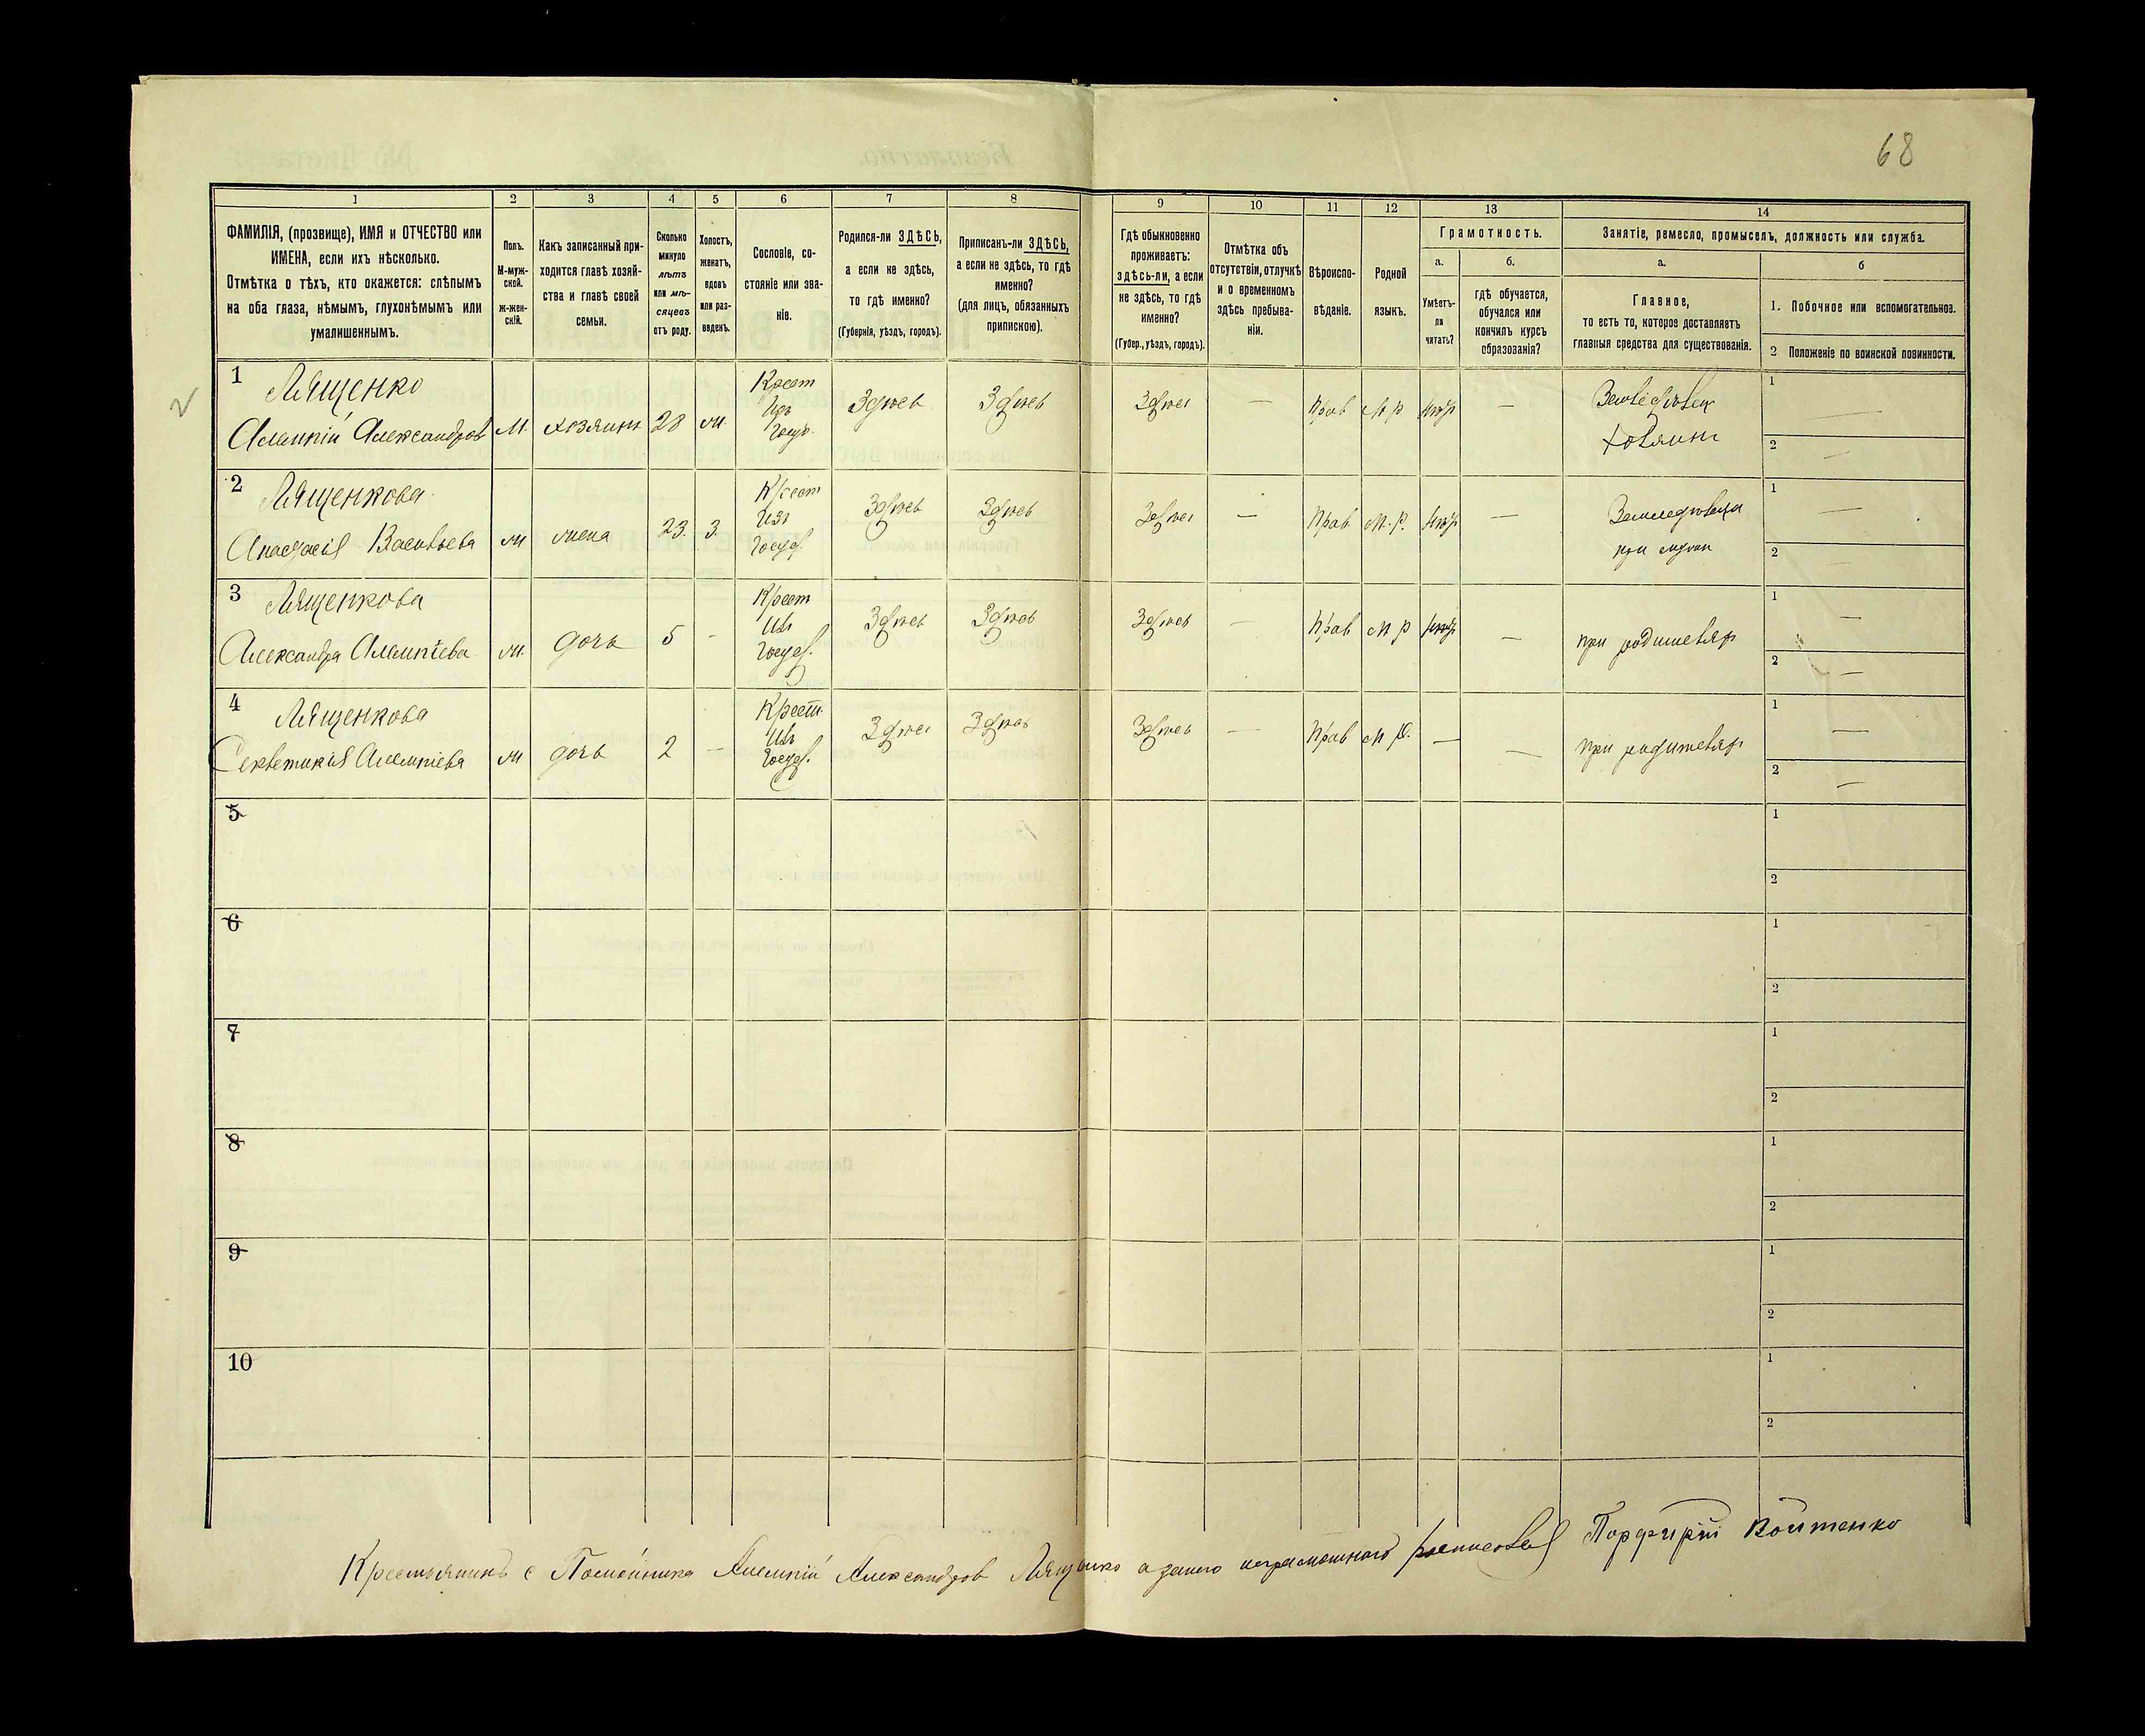 68
1 2 3 4 5 6 7 8 9 10 11 12 13 14
ФАМИЛІЯ, (прозвище), ИМЯ и ОТЧЕСТВО или
ИМЕНА, если ихъ нѣсколько.
Отмѣтка о тѣхъ, кто окажется: слѣпымъ
на оба глаза, нѣмымъ, глухонѣмымъ или
умалишеннымъ.
Полъ.
М-муж-
ской.
Ж-жен-
скій.
Какъ записанный при-
ходится главѣ хозяй-
ства и главѣ своей
семьи.
Сколько
минуло
лѣтъ
или мѣ-
сяцевъ
отъ роду.
Холостъ,
женатъ,
вдовъ
или раз-
веденъ.
Сословіе, со-
стояніе или зва-
ніе.
Родился-ли ЗДѢСЬ,
а если не здѣсь,
то гдѣ именно?
(Губернія, уѣздъ, городъ).
Приписанъ-ли ЗДѢСЬ,
а если не здѣсь, то гдѣ
именно?
(для лицъ, обязанныхъ
припискою).
Гдѣ обыкновенно
проживаетъ:
здѣсь-ли, а если
не здѣсь, то гдѣ
именно?
(Губер., уѣздъ, городъ).
Отмѣтка объ
отсутствіи, отлучкѣ
и о временномъ
здѣсь пребыва-
ніи.
Вѣроиспо-
вѣданіе.
Родной
языкъ.
Грамотность.
а.
Умѣетъ-
ли
читать?
б.
гдѣ обучается,
обучался или
кончилъ курсъ
образованія?
Занятіе, ремесло, промыселъ, должность или служба.
а.
Главное,
то есть то, которое доставляетъ
главныя средства для существованія.
б
1. Побочное или вспомогательное.
2 Положеніе по воинской повинности.
1 Лященко Крест 1
Алимпій Александров М. хозяинъ 28 ж. Изъ Здѣсь Здѣсь Здѣсь — Прав М р — Земледѣлец —
Госуд. хозяинъ 2 —
2 Лященкова Крест 1
Анастасія Васильева ж жена 23. З. Изъ Здѣсь Здѣсь Здѣсь — Прав М. р. — Земледѣлица —
Госуд. при мужѣ 2 —
3 Лященкова Крест 1
Александра Алимпіева ж. дочь 5 - Изъ Здѣсь Здѣсь Здѣсь — Прав М р — при родителях —
Госуд. 2 —
4 Лященкова Крест. 1
Алимпіева ж дочь 2 — Изъ Здѣсь Здѣсь Здѣсь — Прав М р. — — при родителях —
Госуд. 2 —
5 1
2
6 1
2
7 1
2
8 1
2
9 1
2
10 1
2
Крестьянинъ с Алимпій Александров Лященко а занего неграмотного росписовался Порфирій Войтенко